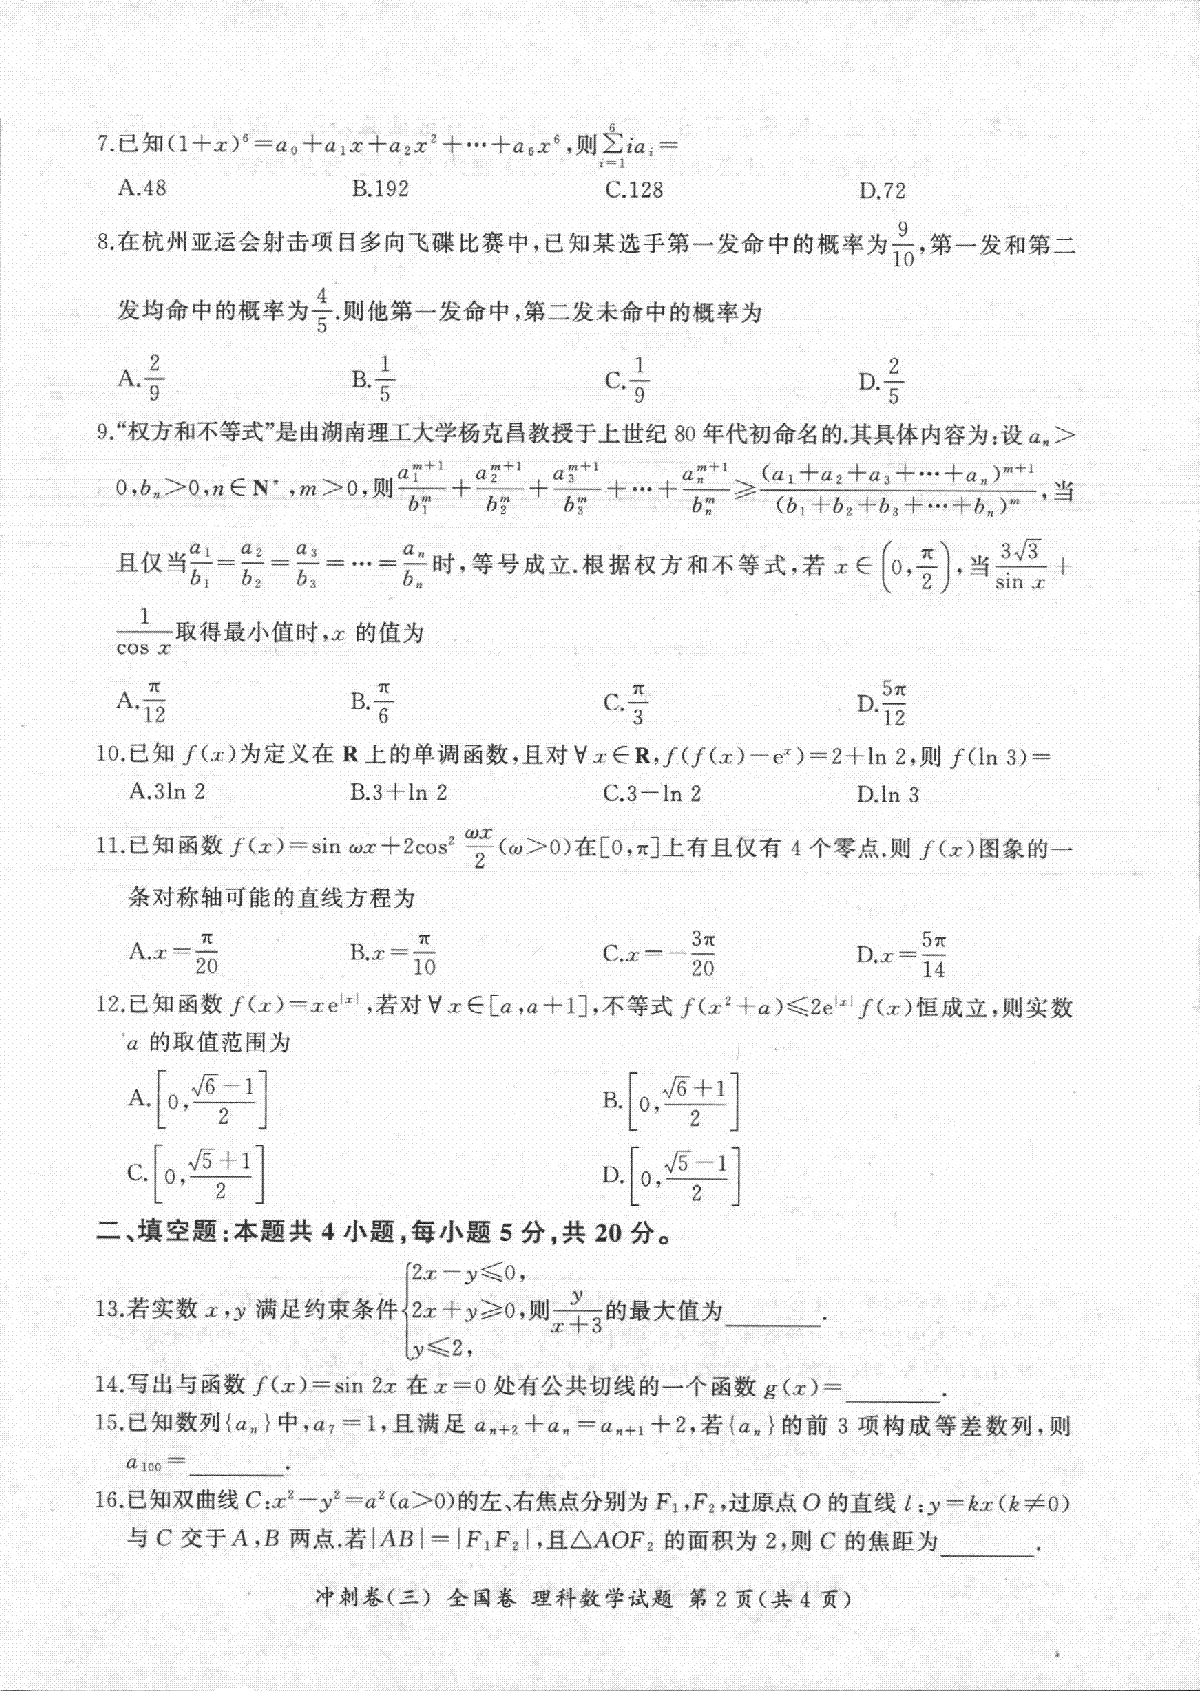 7.已知(1+x)⁶=a₀+a₁x+a₂x²+⋯+a₆x⁶,则∑_{i=1}^{6}iaᵢ=
A.48 B.192 C.128 D.72
8.在杭州亚运会射击项目多向飞碟比赛中,已知某选手第一发命中的概率为9/10,第一发和第二
发均命中的概率为4/5.则他第一发命中,第二发未命中的概率为
A.2/9 B.1/5 C.1/9 D.2/5
9.“权方和不等式”是由湖南理工大学杨克昌教授于上世纪80年代初命名的.其具体内容为:设aₙ>
0,bₙ>0,n∈N*,m>0,则a₁^{m+1}/b₁^m+a₂^{m+1}/b₂^m+a₃^{m+1}/b₃^m+⋯+aₙ^{m+1}/bₙ^m≥(a₁+a₂+a₃+⋯+aₙ)^{m+1}/(b₁+b₂+b₃+⋯+bₙ)^m,当
且仅当a₁/b₁=a₂/b₂=a₃/b₃=⋯=aₙ/bₙ时,等号成立.根据权方和不等式,若x∈(0,π/2),当3√3/sin x+
1/cos x取得最小值时,x的值为
A.π/12 B.π/6 C.π/3 D.5π/12
10.已知f(x)为定义在R上的单调函数,且对∀x∈R,f(f(x)-eˣ)=2+ln 2,则f(ln 3)=
A.3ln 2 B.3+ln 2 C.3-ln 2 D.ln 3
11.已知函数f(x)=sin ωx+2cos² ωx/2(ω>0)在[0,π]上有且仅有4个零点.则f(x)图象的一
条对称轴可能的直线方程为
A.x=π/20 B.x=π/10 C.x=-3π/20 D.x=5π/14
12.已知函数f(x)=xe^{|x|},若对∀x∈[a,a+1],不等式f(x²+a)≤2e^{|x|}f(x)恒成立,则实数
a的取值范围为
A.[0,(√6-1)/2] B.[0,(√6+1)/2]
C.[0,(√5+1)/2] D.[0,(√5-1)/2]
二、填空题:本题共4小题,每小题5分,共20分。
13.若实数x,y满足约束条件{2x-y≤0,2x+y≥0,y≤2,则y/(x+3)的最大值为________.
14.写出与函数f(x)=sin 2x在x=0处有公共切线的一个函数g(x)=________.
15.已知数列{aₙ}中,a₇=1,且满足aₙ₊₂+aₙ=aₙ₊₁+2,若{aₙ}的前3项构成等差数列,则
a₁₀₀=________.
16.已知双曲线C:x²-y²=a²(a>0)的左、右焦点分别为F₁,F₂,过原点O的直线l:y=kx(k≠0)
与C交于A,B两点.若|AB|=|F₁F₂|,且△AOF₂的面积为2,则C的焦距为________.
冲刺卷(三) 全国卷 理科数学试题 第2页(共4页)